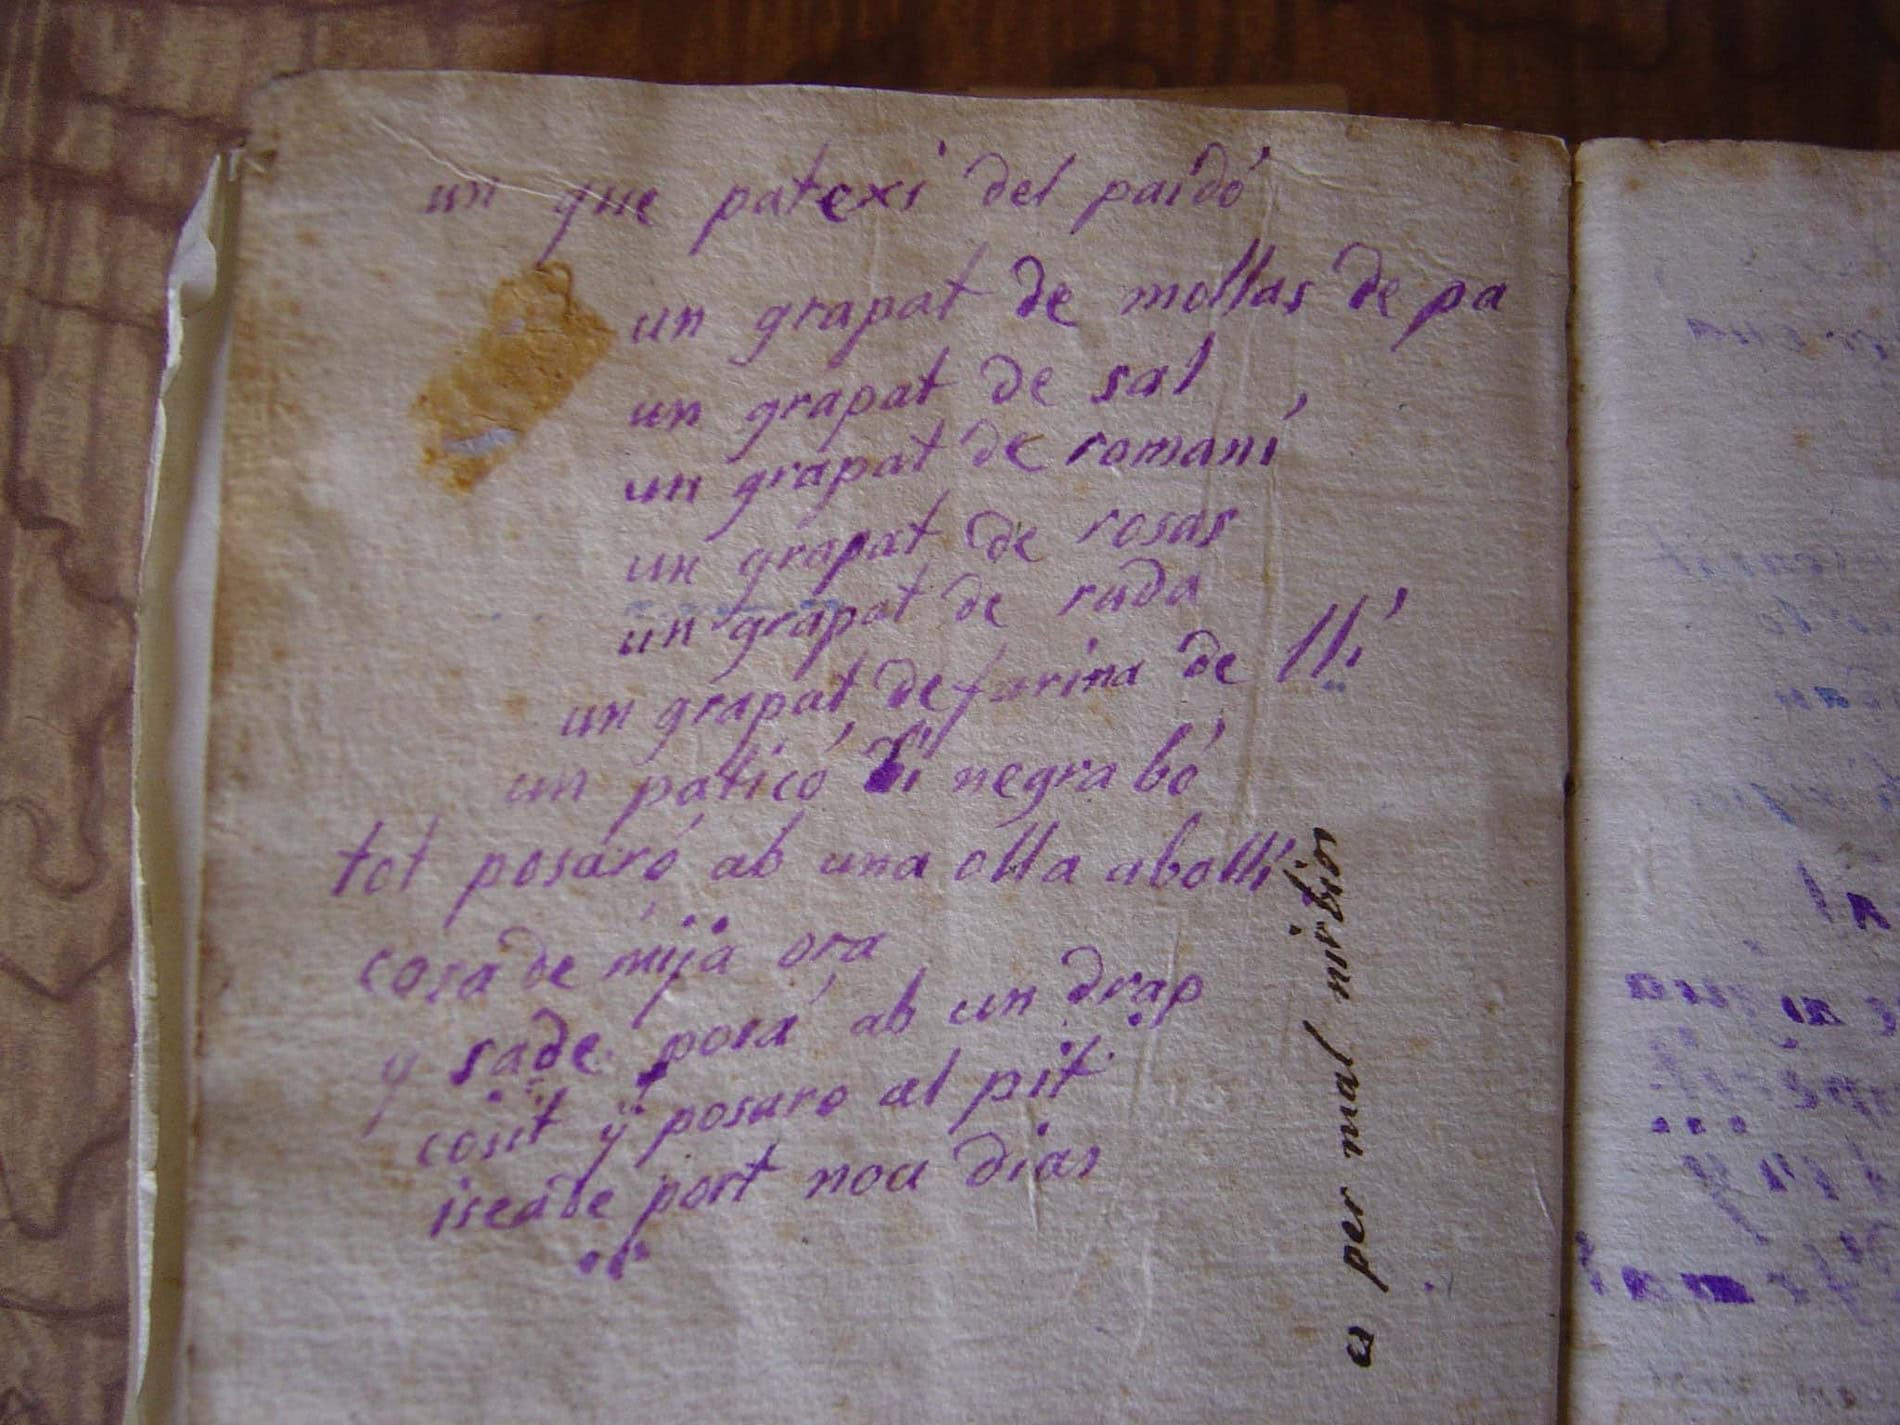 un que patexi del paidó
un grapat de mollas de pa
un grapat de sal
un grapat de romaní
un grapat de rosas
un grapat de ruda
un grapat de farina de llí
un paticó vi negra bó
tot posaró ab una olla abollí
cosa de mija ora
y sade posá ab un drap
cosit y posaro al pit
iseade port nou dias
es per mal nirbios